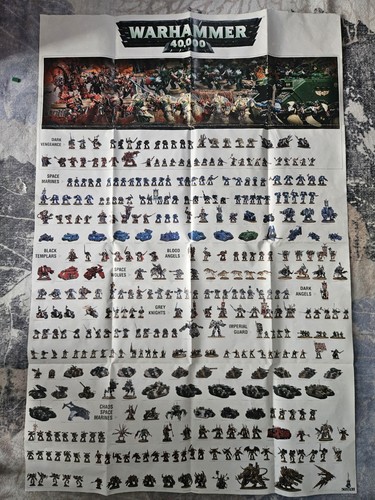 WARHAMMER
40,000
DARK
VENGEANCE
SPACE
MARINES
BLACK
TEMPLARS
BLOOD
ANGELS
SPACE
WOLVES
DARK
ANGELS
GREY
KNIGHTS
IMPERIAL
GUARD
CHAOS
SPACE
MARINES